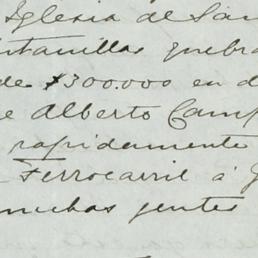 Iglesia de San
ntanillas quebra
de $300.000 en d
e Alberto Camp
rapidamente
Ferrocarril á
muchas gentes